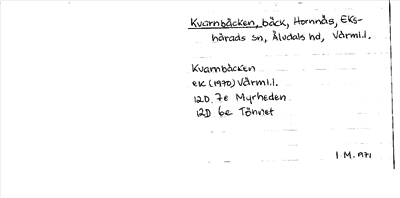 Kvarnbäcken, bäck, Hornnäs, Eks-
härads sn, Älvdals hd, Värml.l.
Kvarnbäcken
ek (1970) Värml.l.
12D 7e Myrheden
12D 6e Tönnet
I.M. 1971